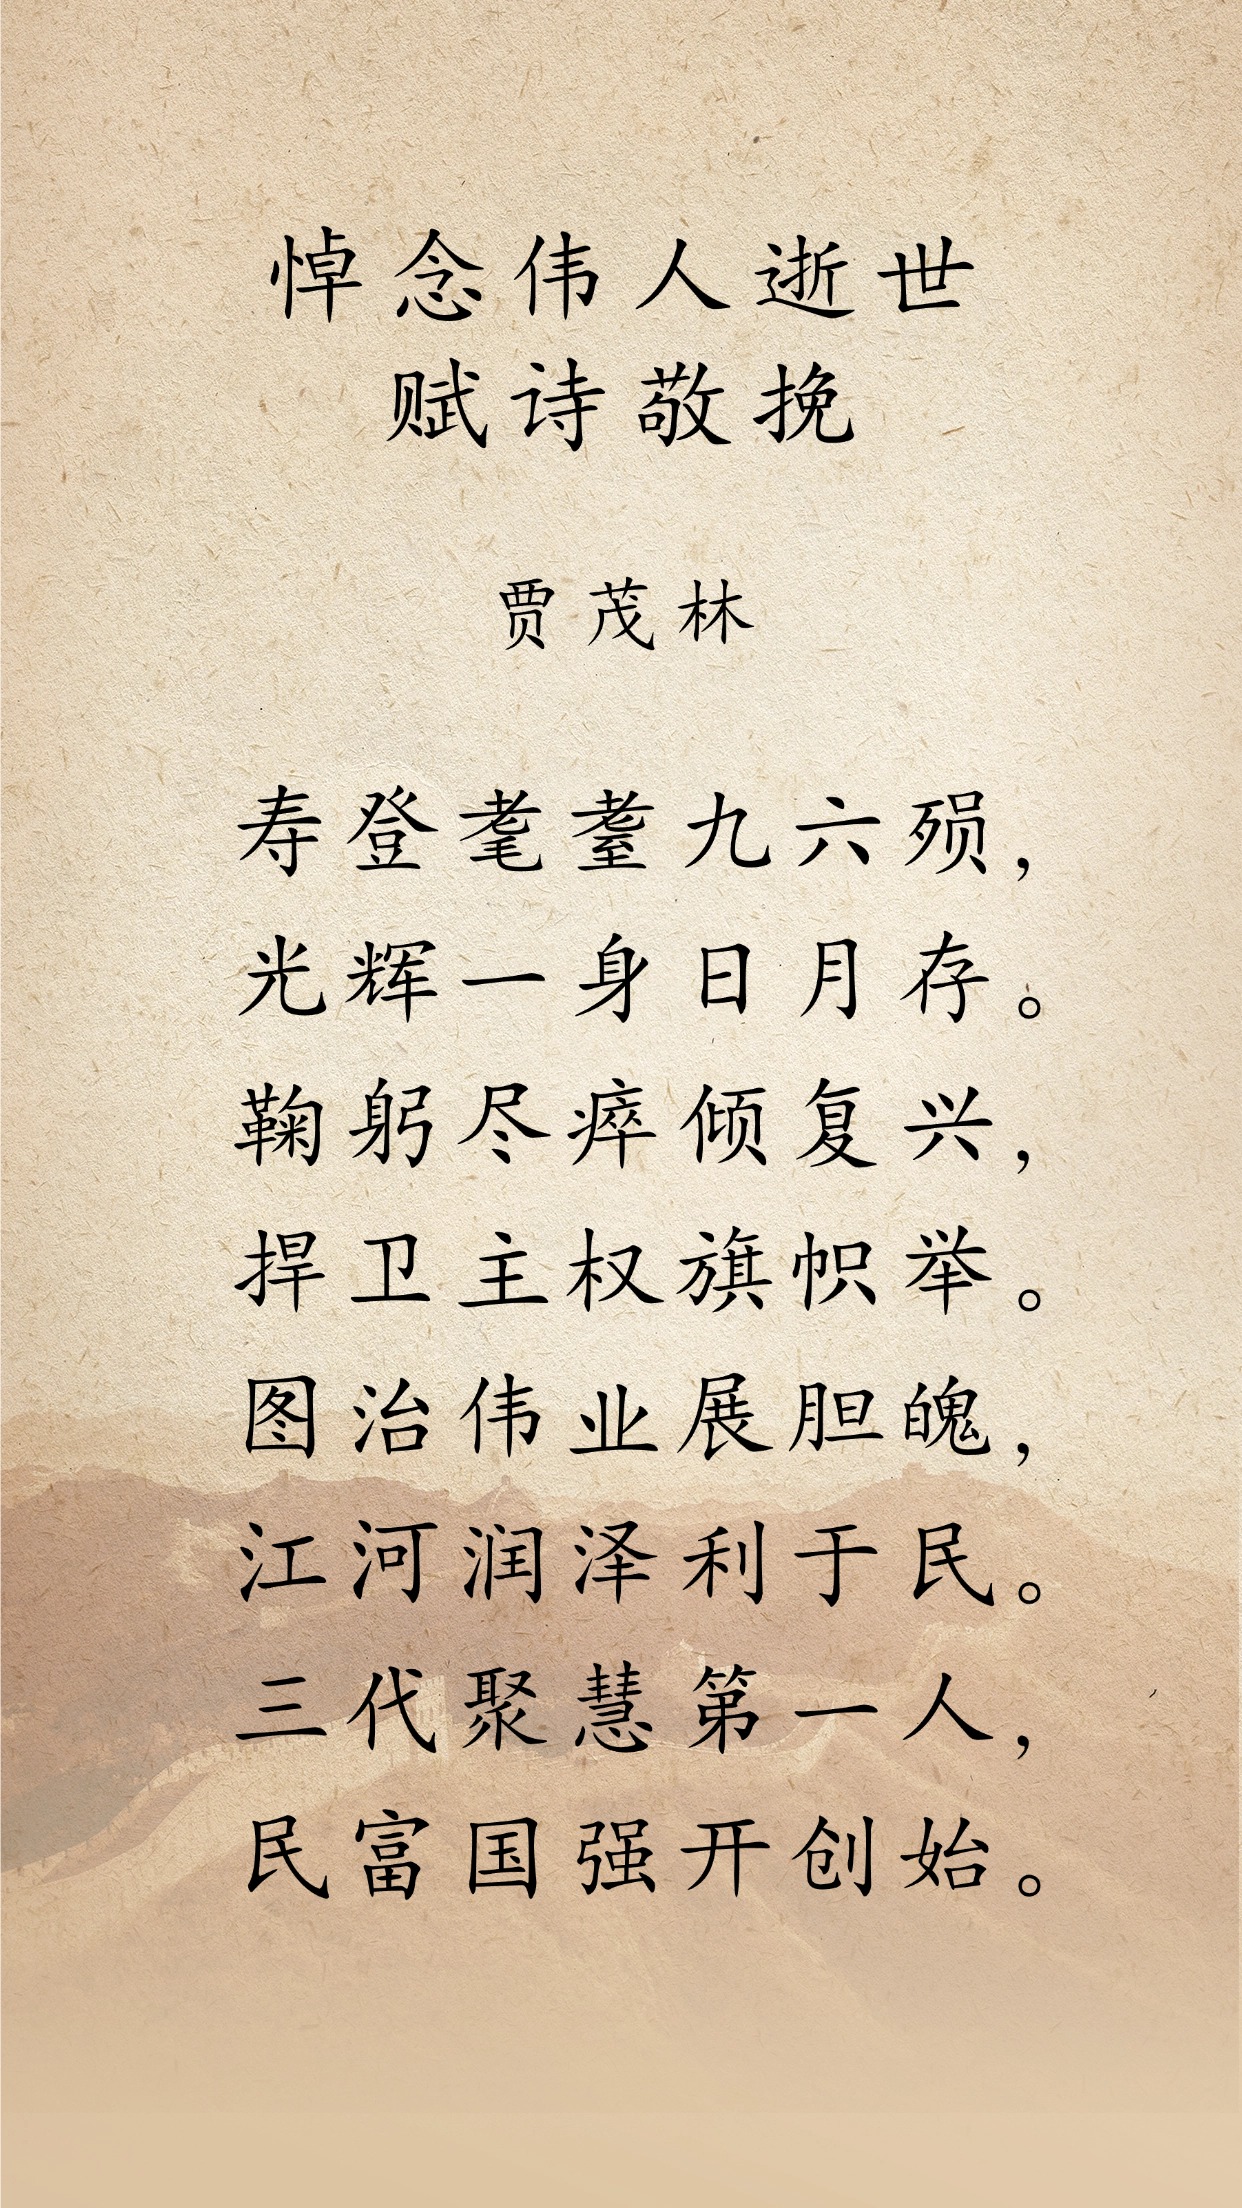 悼念伟人逝世
赋诗敬挽
贾茂林
寿登耄耋九六殒，
光辉一身日月存。
鞠躬尽瘁倾复兴，
捍卫主权旗帜举。
图治伟业展胆魄，
江河润泽利于民。
三代聚慧第一人，
民富国强开创始。